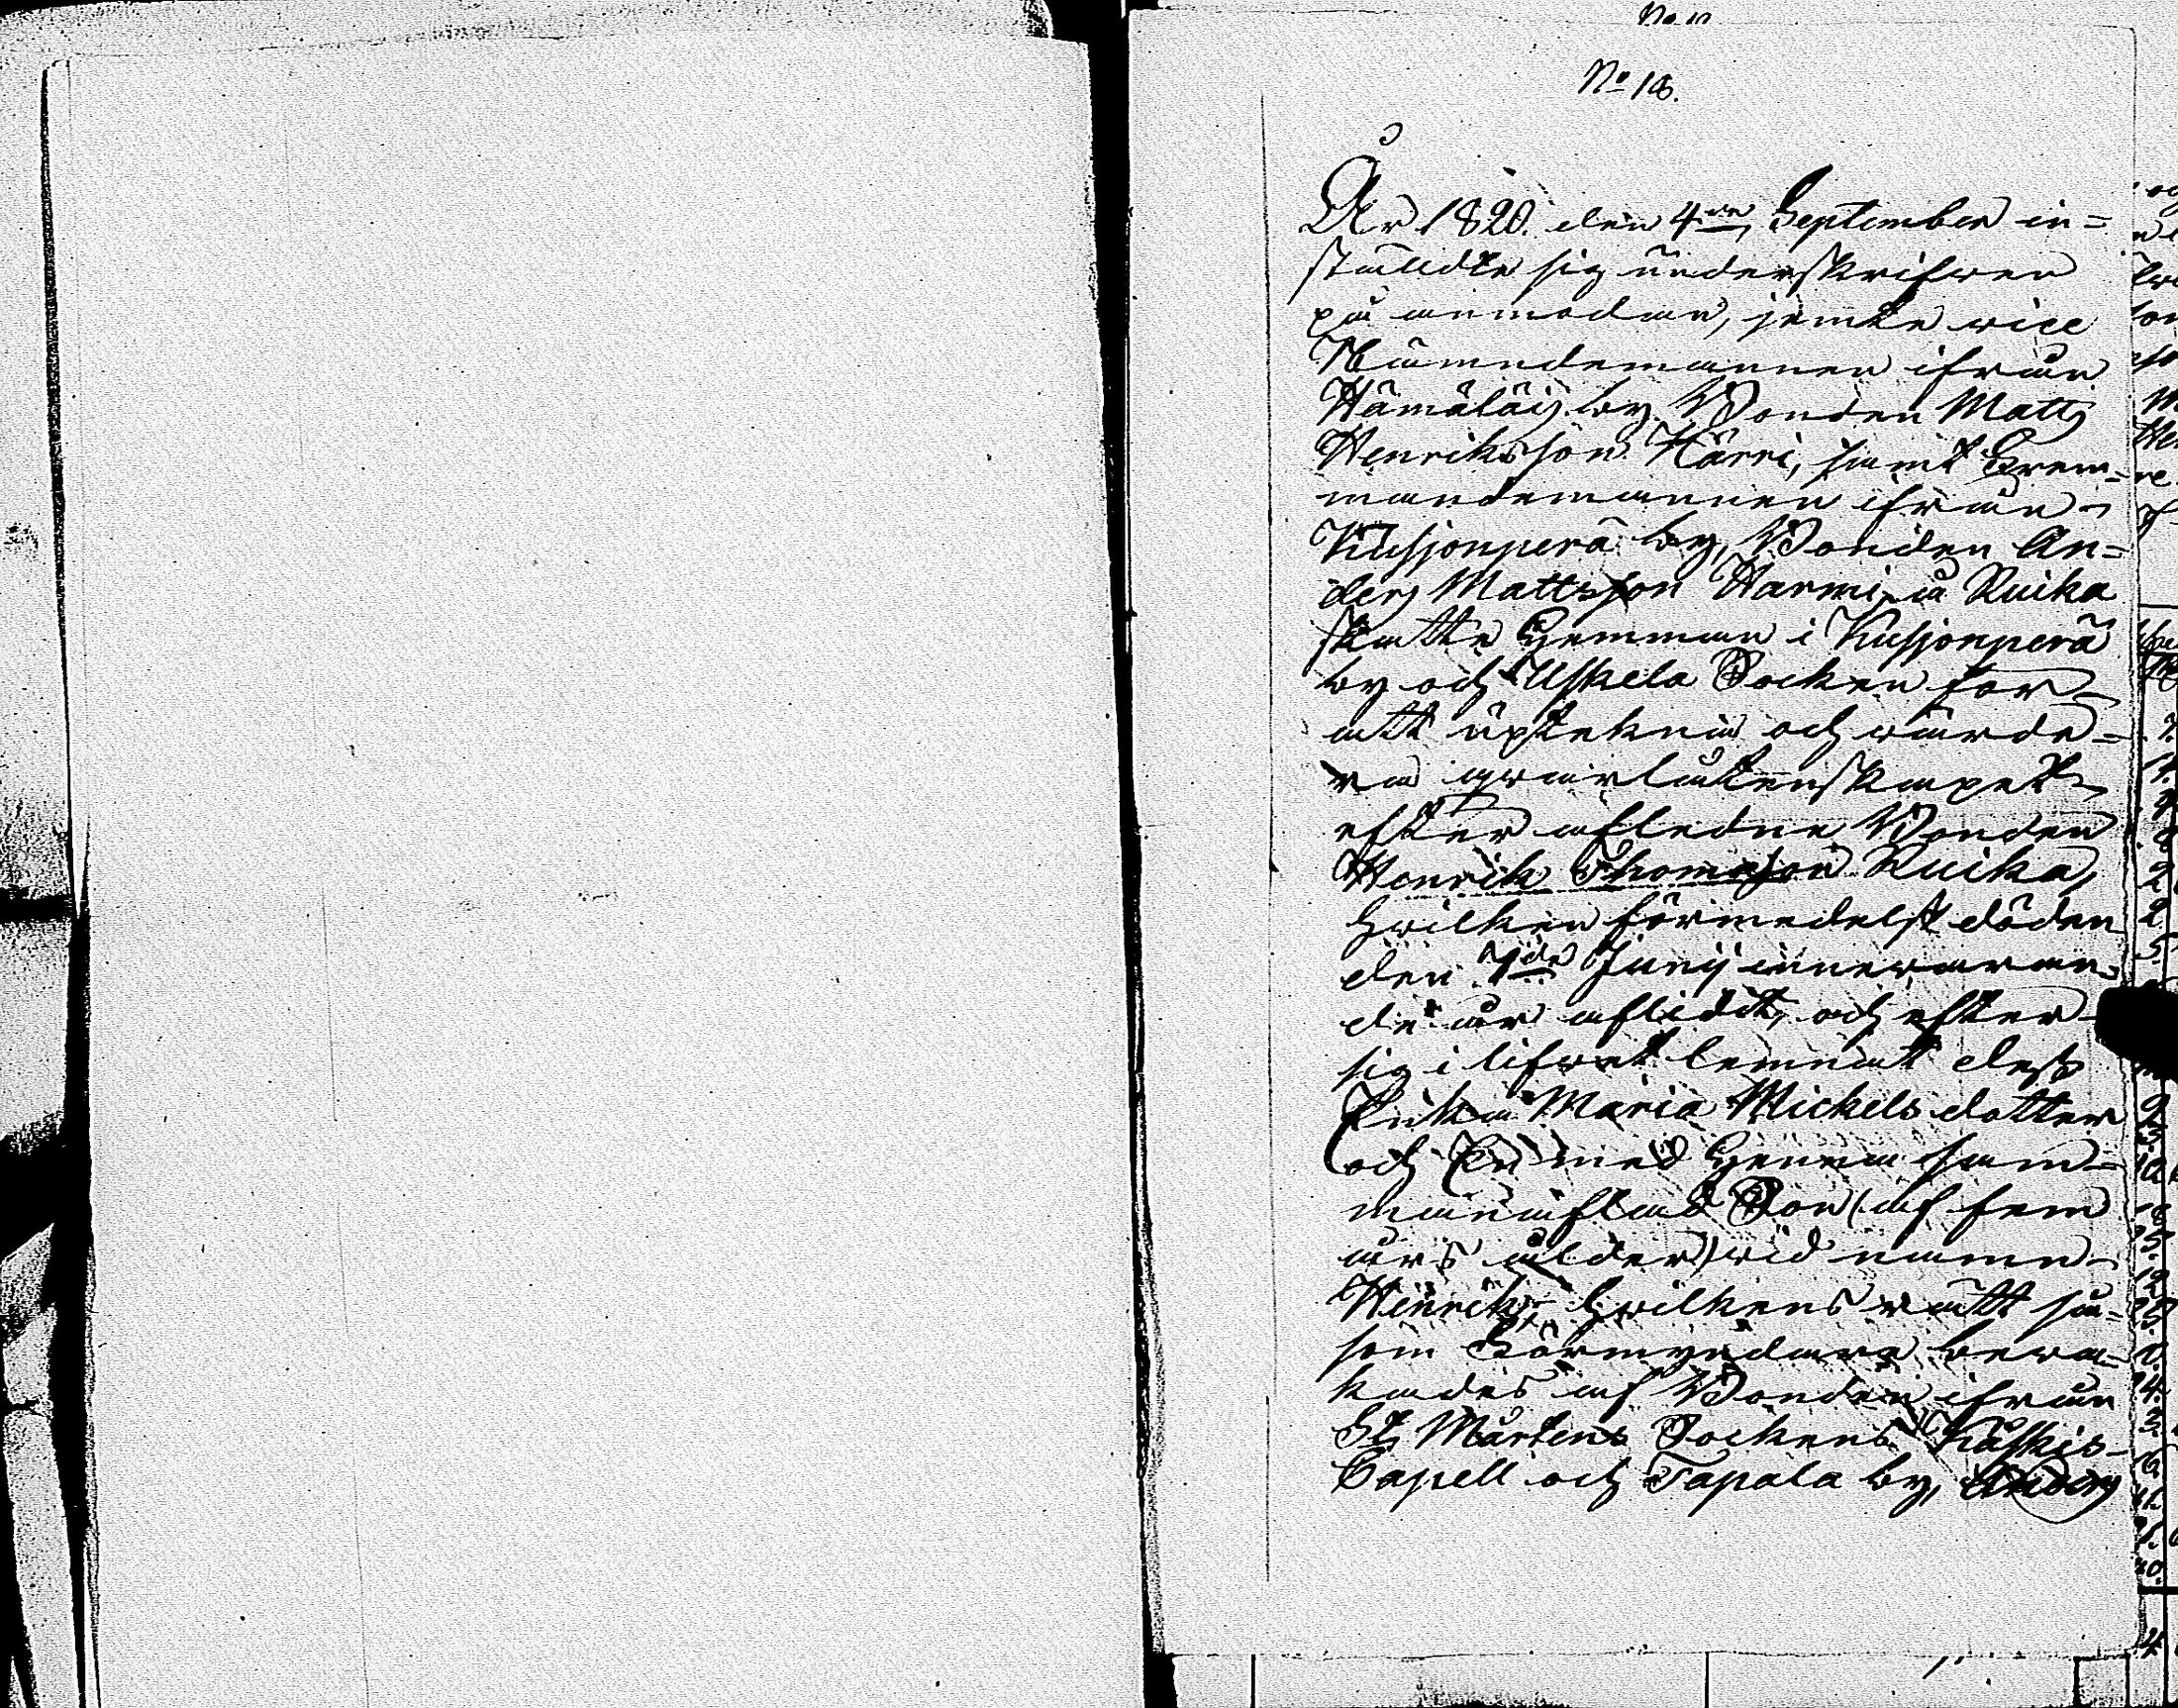 No 18.
År 1820. den 4de September in=
stälde sig underskrifwen
på anmodan, jemte vice
Nämndemannen ifrån
Hämäläis by Bonden Matts
Henriksson Härri, samt Exem=
mandemannen ifrån
Kusjonperä by, Bonden An=
ders Mattsson Harmi, å Ruika
skatte Hemman i Kusjonperä
by och Uskela Socken för
att upteckna och wärde=
ra qwarlåtenskapet
efter aflednе Bonden
Henrik Thomasson Ruika,
hwilken förmedelst döden
den 7de Junij innewaran=
de år aflidit, och efter
sig i lifwet lemnat dess
Enka Maria Mickels dotter
och En med henne sam=
manaflad Son (af fem
års ålder) wid namn
Henrik, hwilkens rätt så=
som Förmyndare bewa=
kades af Bonden ifrån
St Mårtens Sockens Koskis
Capell och Tapala by, Anders